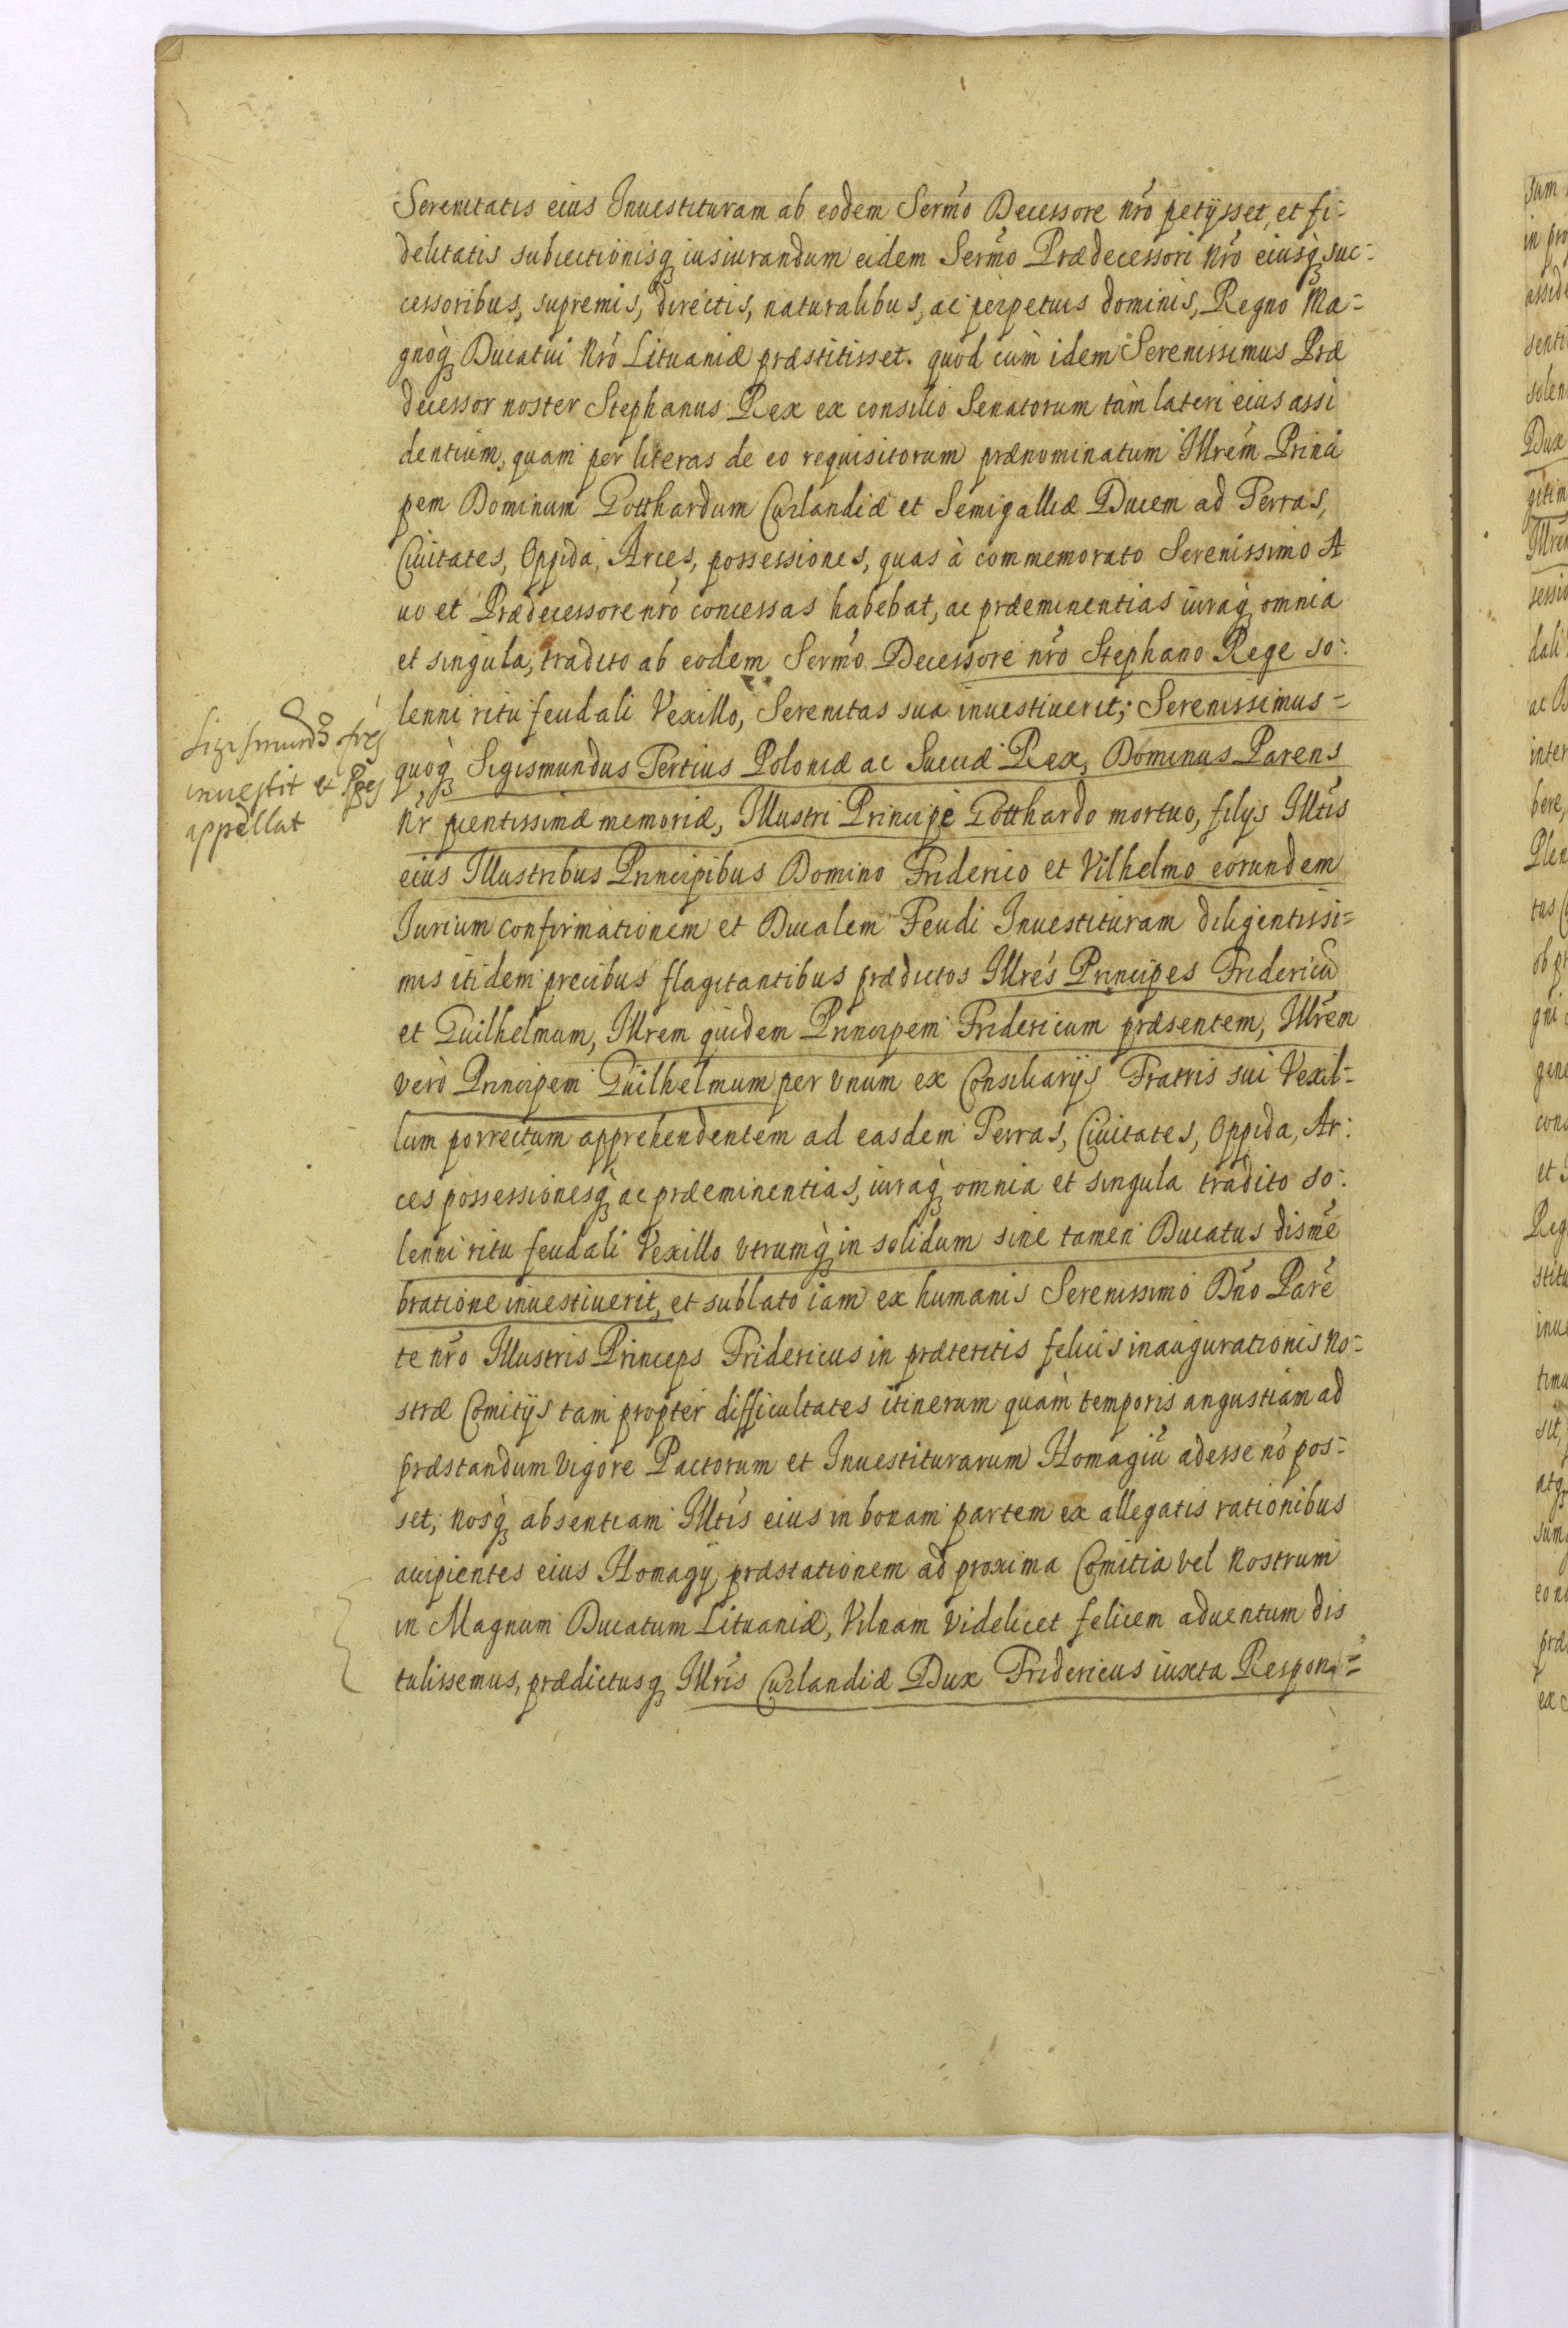 Serenitatis eius Inuestituram ab eodem Sermo Decessore nro petijsset, et fi-
delitatis subiectionisq iusiurandum eidem Sermo Prædecessori nro eiusq suc-
cessoribus, supremis, directis, naturalibus, ac perpetuis dominis, Regno Ma-
gnoq Ducatui nro Lituaniæ præstitisset. quod cùm idem Serenissimus Præ
decessor noster Stephanus Rex ex consilio Senatorum tàm lateri eius assi
dentium, quam per literas de eo requisitorum prænominatum Illrem Princi
pem Dominum Gotthardum Curlandiæ et Semigalliæ Ducem ad Terras,
Ciuitates, Oppida, Arces, possessiones, quas à commemorato Serenissimo A
uo et Prædecessore nro concessas habebat, ac præeminentias iuraq omnia
et singula, tradito ab eodem Sermo Decessore nro Stephano Rege so-
lenni ritu feudali Vexillo, Serenitas sua inuestiuerit; Serenissimus-
quoq Sigismundus Tertius Poloniæ ac Sueciæ Rex, Dominus Parens
Nr pientissimæ memoriæ, Illustri Principe Gotthardo mortuo, filys Illtis
eius Illustribus Principibus Domino Friderico et Vilhelmo eorundem
Iurium confirmationem et Ducalem Feudi Inuestituram diligentissi-
mis itidem precibus flagitantibus prædictos Illres Principes Fridericū
et Guilhelmum, Illrem quidem Principem Fridericum præsentem, Illrem
verò Principem Guilhelmum per vnum ex Consiliarijs Fratris sui Vexil-
lum porrectum apprehendentem ad easdem Terras, Ciuitates, Oppida, Ar-
ces possessionesq ac præeminentias, iuraq omnia et singula tradito so-
lenni ritu feudali Vexillo vtrumq in solidum sine tamen Ducatus dismē
bratione inuestiuerit, et sublato iam ex humanis Serenissimo Dno Parē
te nro Illustris Princeps Fridericus in præteritis felicis inaugurationis no-
stræ Comitijs tam propter difficultates itinerum quàm temporis angustiam ad
præstandum vigore Pactorum et Inuestiturarum Homagiū adesse nō pos-
set, nosq absentiam Illtis eius in bonam partem ex allegatis rationibus
accipientes eius Homagij præstationem ad proxima Comitia vel nostrum
in Magnum Ducatum Lituaniæ, Vilnam videlicet felicem aduentum dis
tulissemus, prædictusq Illris Curlandiæ Dux Fridericus iuxta Respon-
Sigismundo
inuestit et
appellat